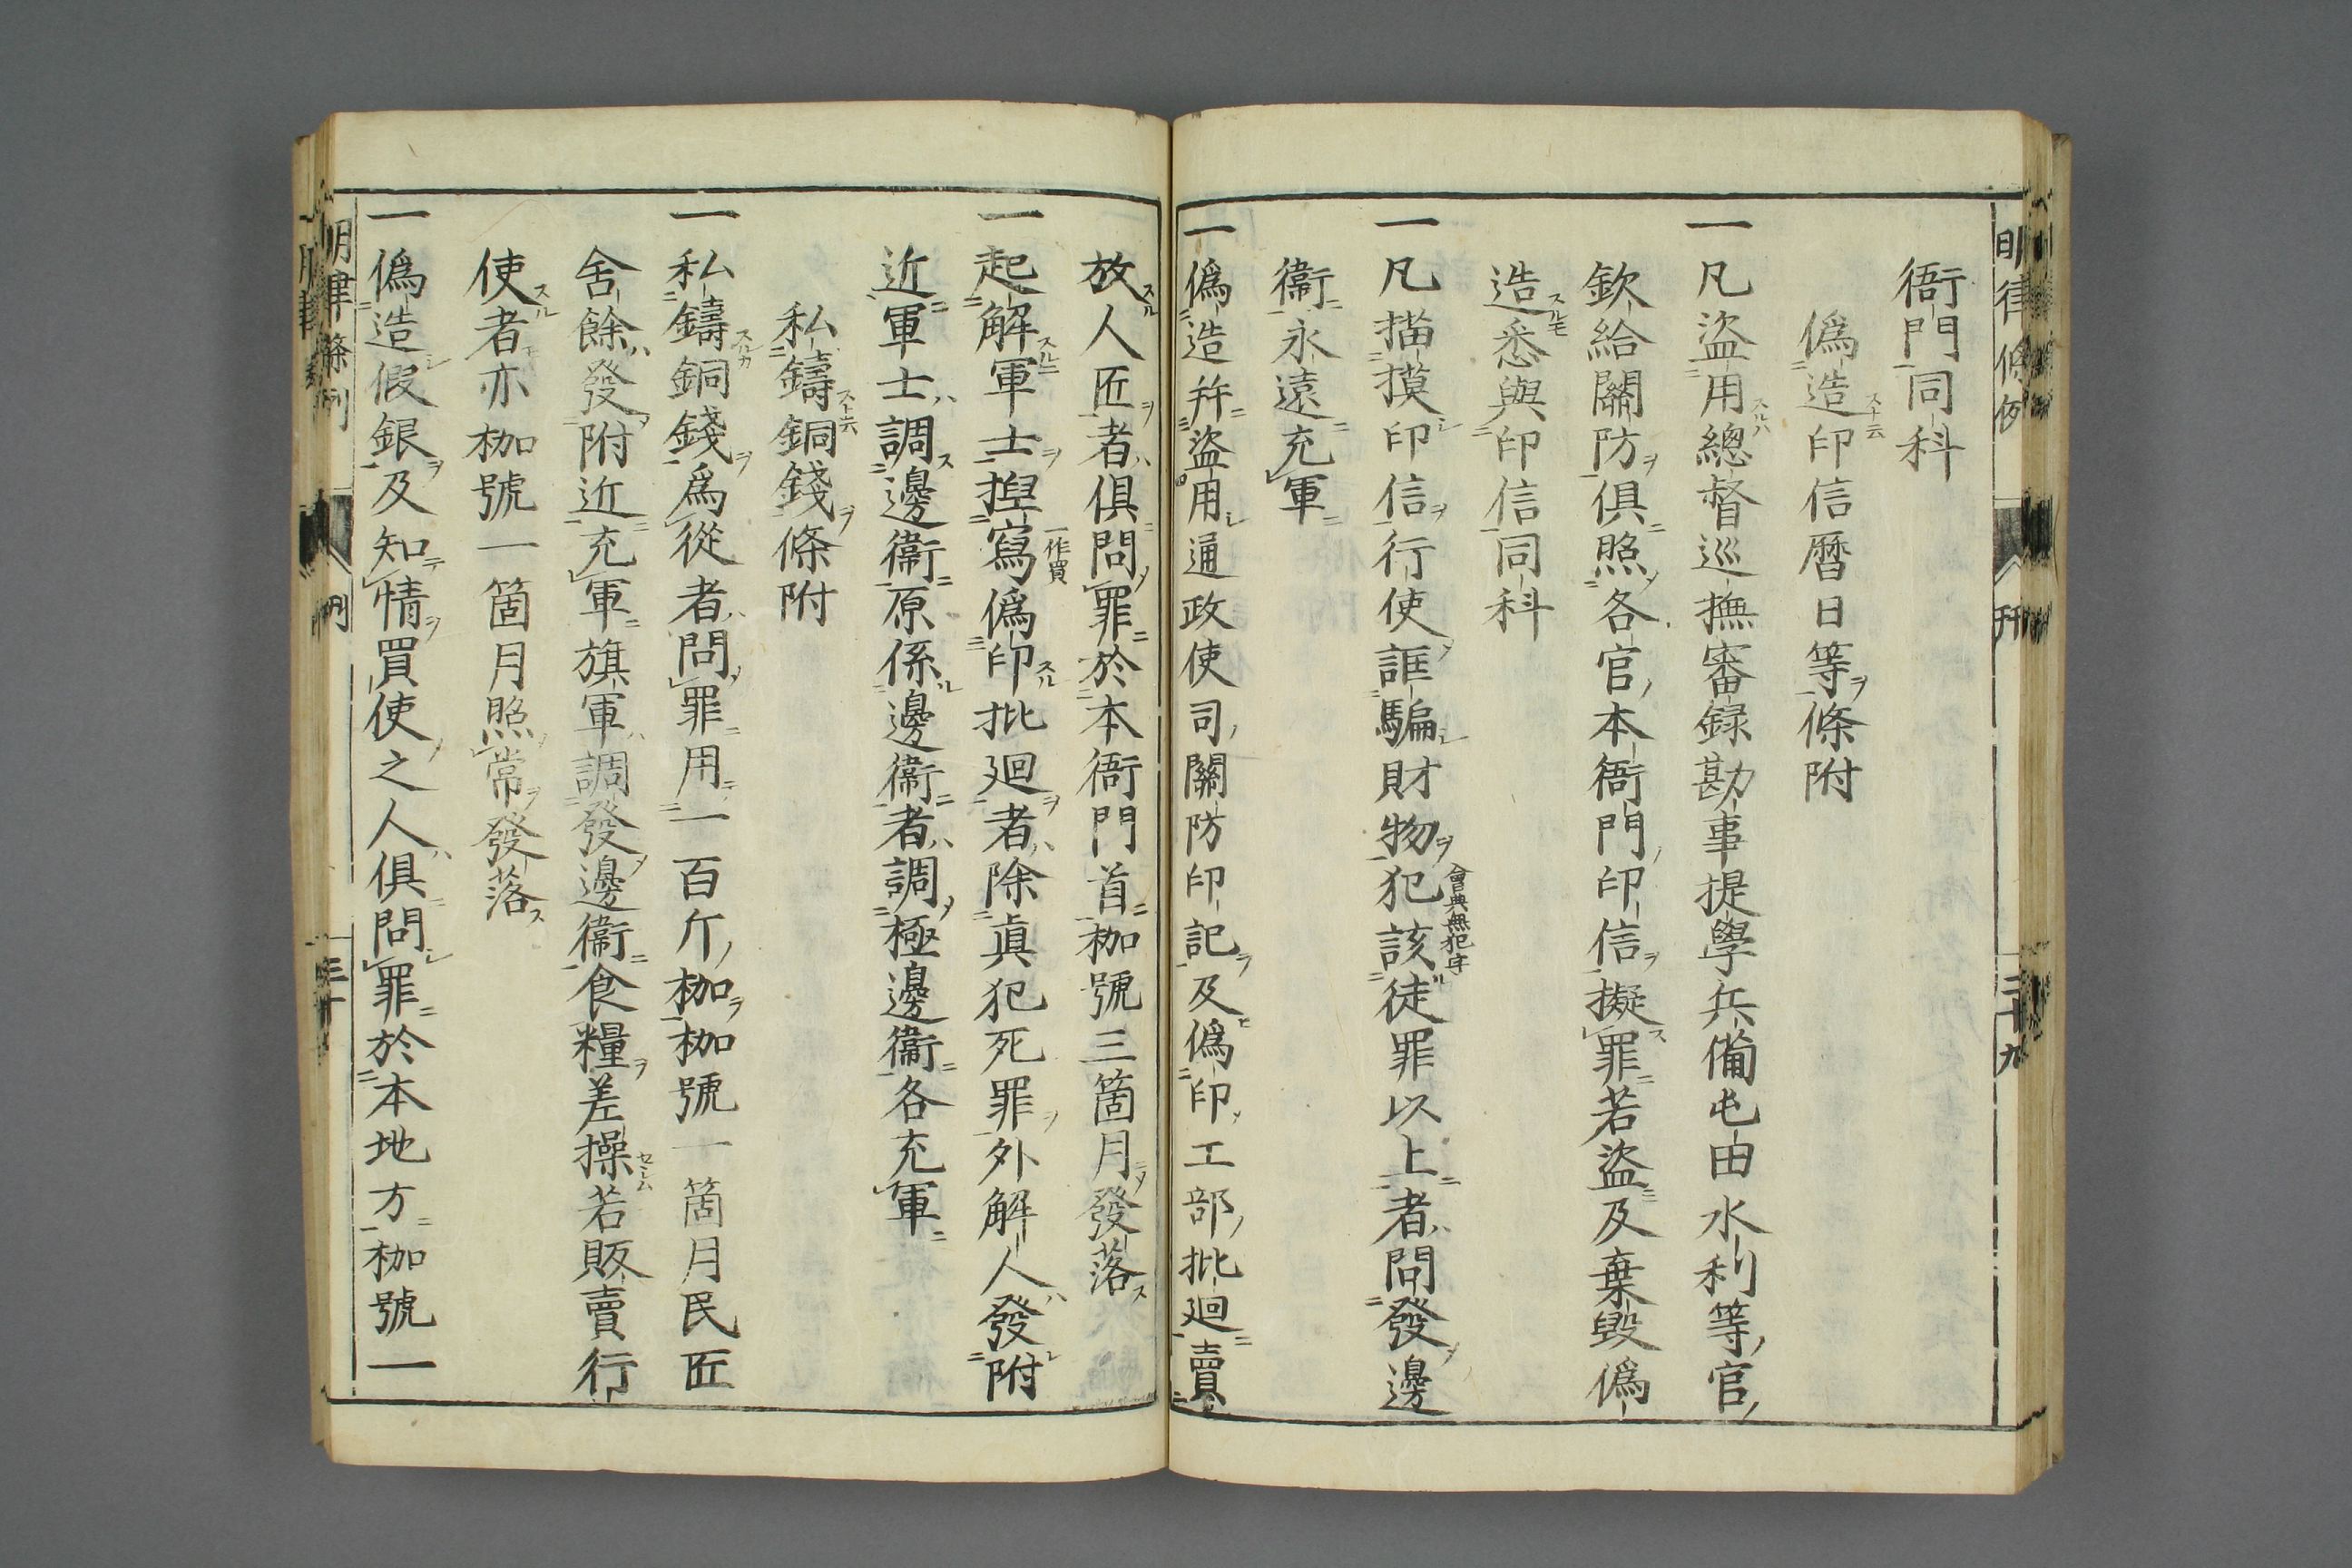 衙門同科
僞造印信曆日等條附
一凡盜用總督巡撫審録勘事提學兵備屯田水利等官
欽給關防俱照各官本衙門印信擬罪若盜及棄毀僞
造悉與印信同科
一凡描摸印信行使誆騙財物犯該徒罪以上者問發邊
會典無犯字
衞永遠充軍
一僞造幷盜用通政使司關防印記及僞印工部批廻賣
放人匠者俱問罪於本衙門首枷號三箇月發落
一起解軍士揑寫僞印批廻者除眞犯死罪外解人發附
一作買
近軍士調邊衞原係邊衞者調極邊衞各充軍
私鑄銅錢條附
一私鑄銅錢爲從者問罪用一百斤枷枷號一箇月民匠
舍餘發附近充軍旗軍調發邊衞食糧差操若販賣行
使者亦枷號一箇月照常發落
一僞造假銀及知情買使之人俱問罪於本地方枷號一